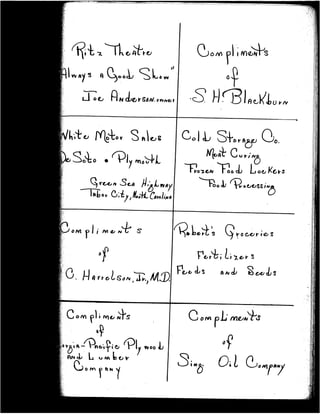 Ritz Theatre
Always a Good Show"
Joe Anderson,
Compliments
of
S. H. Blackburn
White Motor Sales
De Soto • Plymouth
Green Sea Highway
Tabor City, North Carolina
Cold Storage Co.
Meat Curing
Frozen Food Lockers
Food Processing
Compliments
of
C. Harrelson, Jr., M.D.
Robert's Groceries
Fertilizers
Feeds and Seeds
Compliments
of
Georgia-Pacific Plywood
and Lumber
Company
Compliments
of
Sing Oil Company